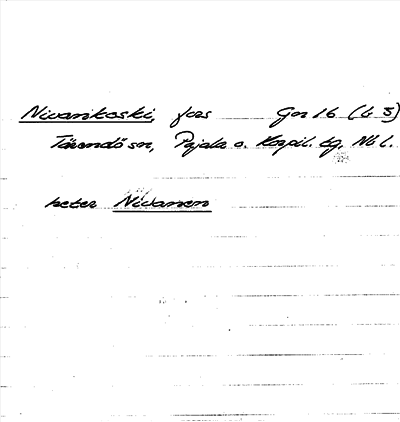 Nivankoski, fors Gor 16 (b 3)
Tärendö sn, Pajala o. Korpil. tg, Nb l.
heter Nivanen